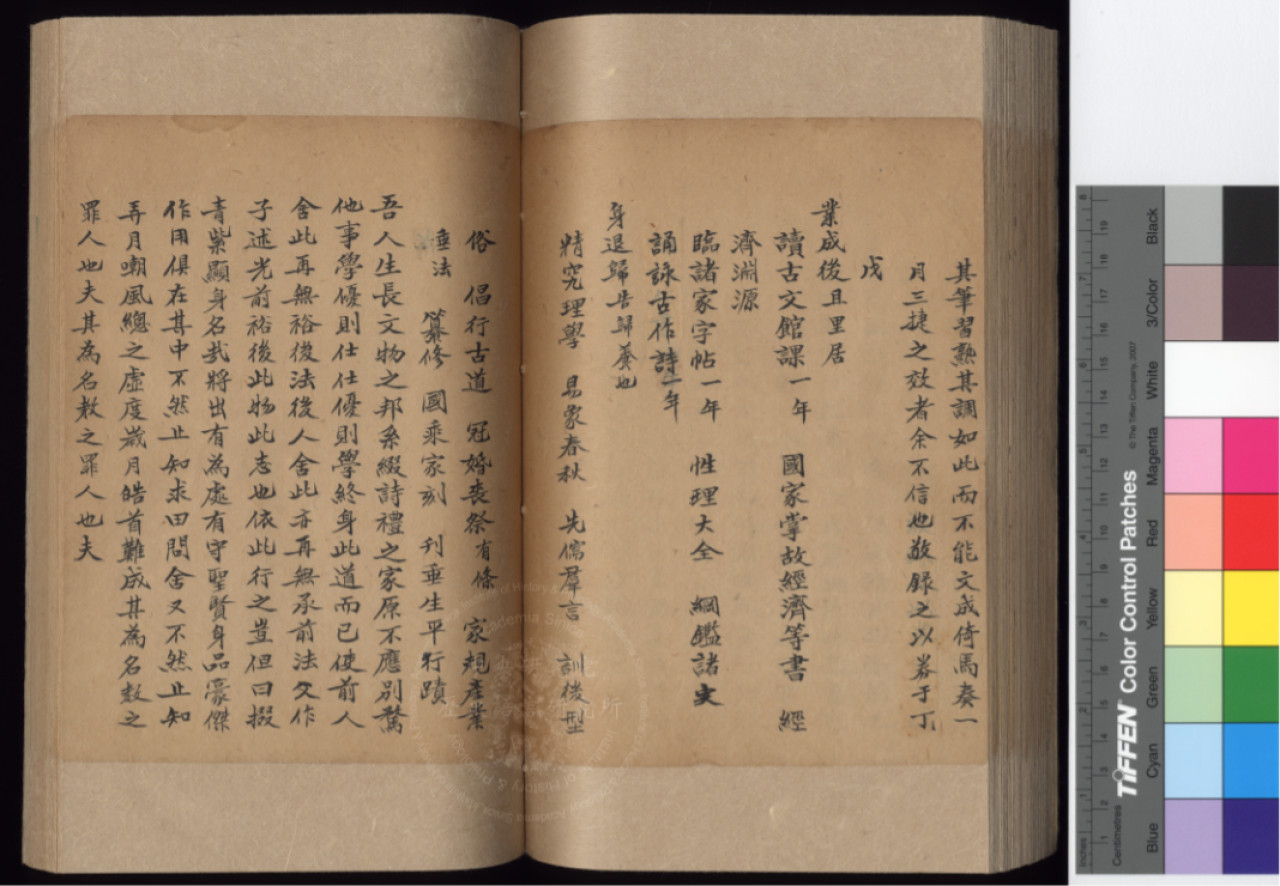 其筆習熟其調如此而不能文成倚馬奏一
月三捷之效者余不信也敬錄之以券于丁
戊
業成後且里居
讀古文館課一年 國家掌故經濟等書 經
濟淵源
臨諸家字帖一年 性理大全 綱鑑諸史
誦詠古作詩一年
身退歸告歸養也
精究理學 易象春秋 先儒羣言 訓後型
俗 倡行古道 冠婚喪祭有條 家規產業
垂法 纂修 國乘家刻 刊垂生平行蹟
吾人生長文物之邦系綴詩禮之家原不應別騖
他事學優則仕仕優則學終身此道而已使前人
舍此再無裕後法後人舍此亦再無承前法父作
子述光前裕後此物此志也依此行之豈但曰掇
青紫顯身名哉將出有為處有守聖賢身品豪傑
作用俱在其中不然止知求田問舍又不然止知
弄月嘲風總之虛度歲月皓首難成其為名教之
罪人也夫其為名教之罪人也夫
TIFFEN Color Control Patches
© The Tiffen Company, 2007
Centimetres
Inches
Blue
Cyan
Green
Yellow
Red
Magenta
White
3/Color
Black